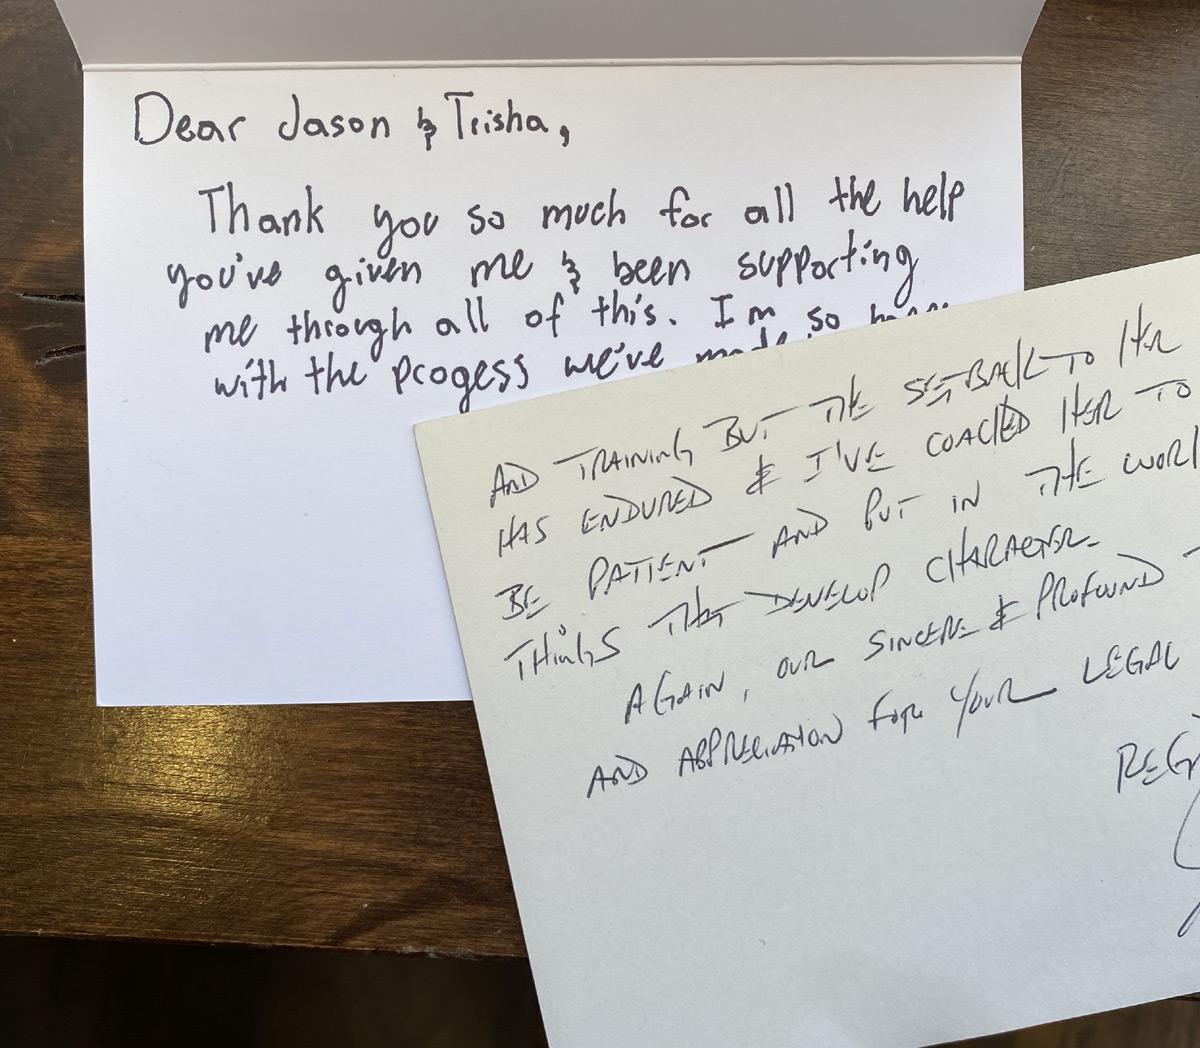 Dear Jason & Trisha,
Thank you so much for all the help
you've given me & been supporting
me through all of this. I'm so
with the progess we've
AND TRAINING BUT THE SETBACK TO HER
HAS ENDURED & I'VE COACHED HER TO
BE PATIENT AND PUT IN THE
THINGS THAT DEVELOP CHARACTER.
AGAIN, OUR SINCERE & PROFOUND
AND APPRECIATION FOR YOUR LEGAL